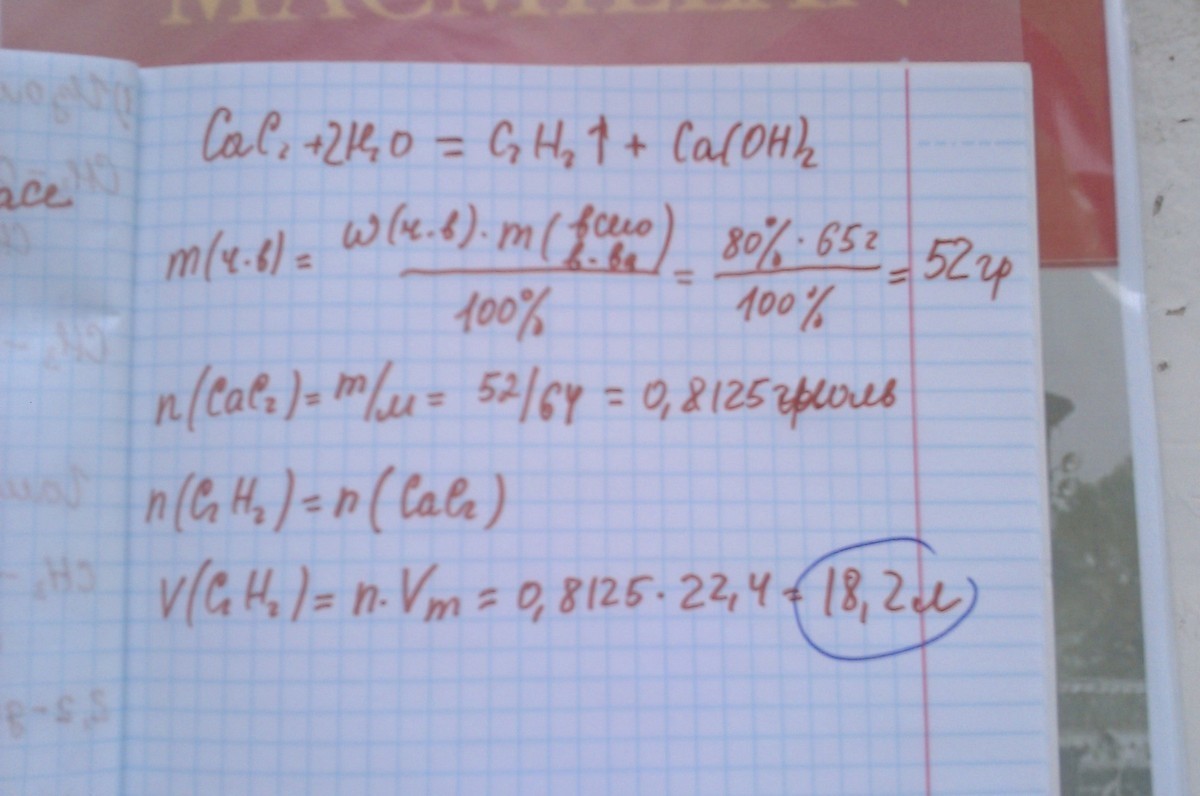 MACMILLAN
CaC₂ + 2H₂O = C₂H₂↑ + Ca(OH)₂
m(ч.в) = ω(ч.в)·m(всего в-ва) / 100% = 80%·65г / 100% = 52гр
n(CaC₂) = m/м = 52/64 = 0,8125 грмоль
n(C₂H₂) = n(CaC₂)
V(C₂H₂) = n·Vm = 0,8125·22,4 = 18,2л